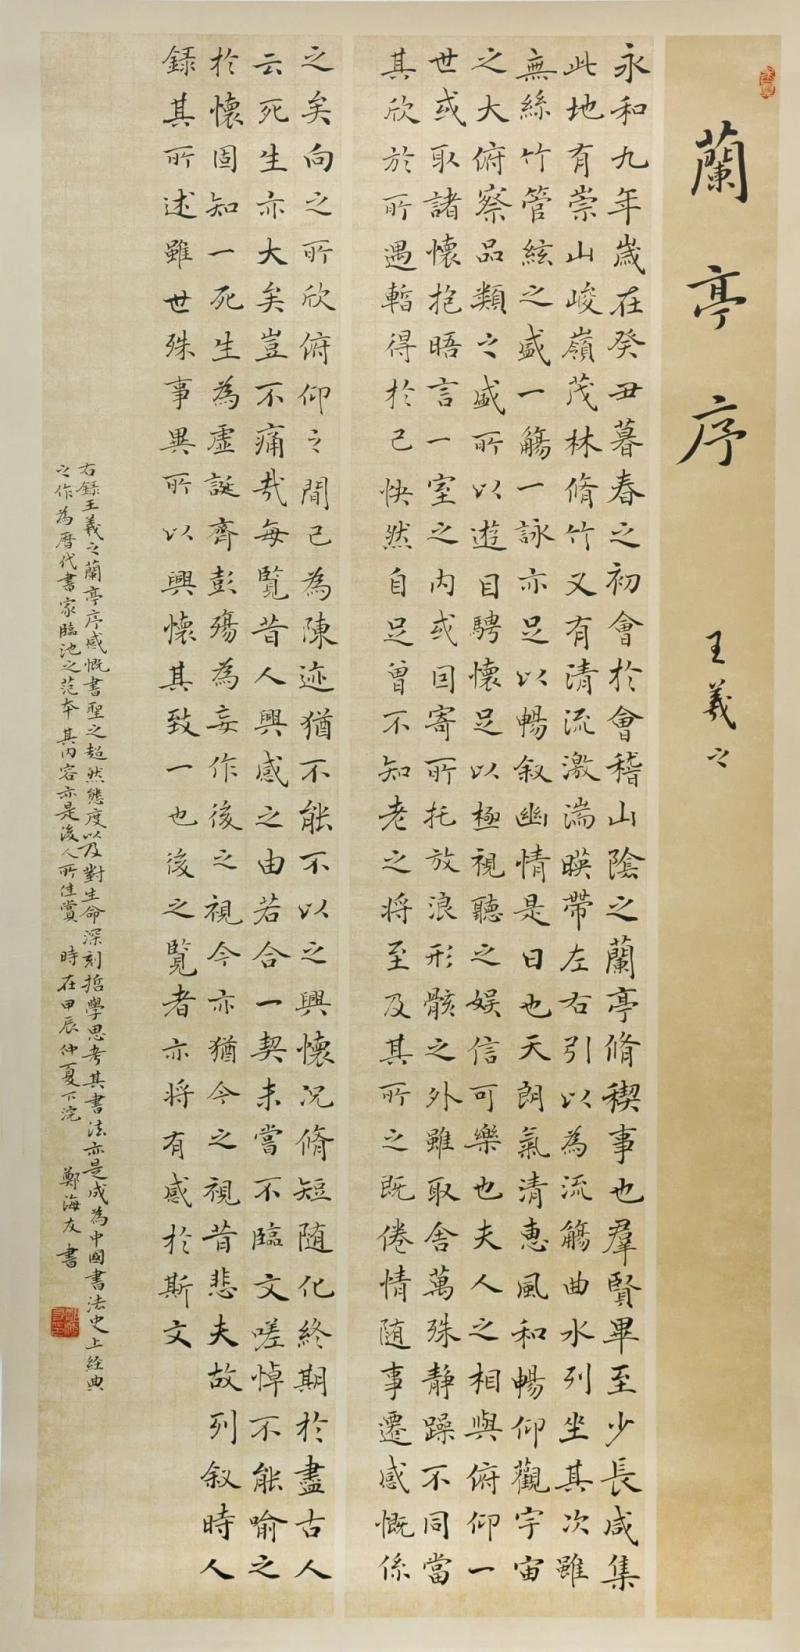 蘭亭序
王羲之
永和九年歲在癸丑暮春之初會於會稽山陰之蘭亭脩稧事也羣賢畢至少長咸集
此地有崇山峻嶺茂林脩竹又有清流激湍暎帶左右引以為流觴曲水列坐其次雖
無絲竹管絃之盛一觴一詠亦足以暢叙幽情是日也天朗氣清惠風和暢仰觀宇宙
之大俯察品類之盛所以遊目騁懷足以極視聽之娱信可樂也夫人之相與俯仰一
世或取諸懷抱晤言一室之内或因寄所托放浪形骸之外雖取舍萬殊静躁不同當
其欣於所遇暫得於己快然自足曾不知老之将至及其所之既倦情随事遷感慨係
之矣向之所欣俯仰之間已為陳迹猶不能不以之興懷况脩短随化終期於盡古人
云死生亦大矣豈不痛哉每覧昔人興感之由若合一契未嘗不臨文嗟悼不能喻之
於懷固知一死生為虛誕齊彭殤為妄作後之視今亦猶今之視昔悲夫故列叙時人
録其所述雖世殊事異所以興懷其致一也後之覧者亦将有感於斯文
右録王羲之蘭亭序感慨書聖之超然態度以及對生命深刻哲學思考其書法亦是成為中國書法史上經典
之作為歷代書家臨池之范本其内容亦是後人所佳賞 時在甲辰仲夏下浣 鄭海友書